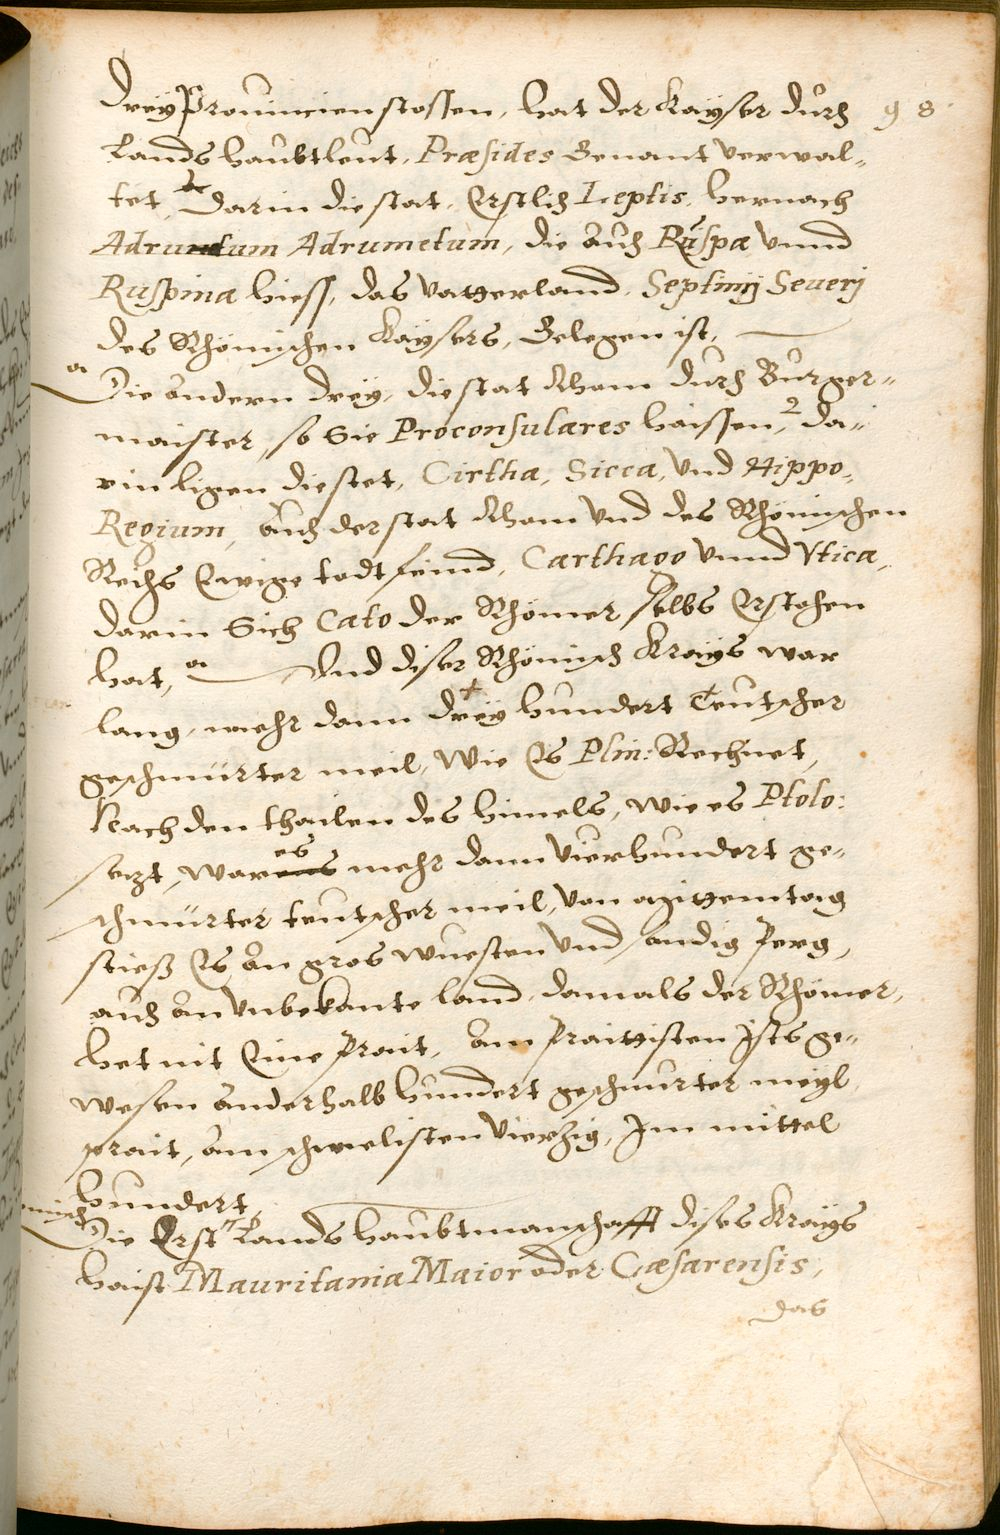 drey Prouincien stossen, hat der Kayser durch 98.
Lands haubtleut, Præsides Genant verwal„
tet, Darin die stat, Erstlich Leptis, hernach
Adruntum Adrumetum, die auch Ruspæ vnnd
Ruspina hiess, das vatterland, Septimij Seuerj
des Rhömischen Kaysers, Gelegen ist,
a Die andern drey, die stat Rhom durch Burger„
maister, so Sie Proconsulares haissen, 2 da„
rin ligen die stet, Cirtha, Sicca, vnd Hippo„
Regium, auch der stat Rhom vnd des Rhömischen
Reichs Ewige todtfeind, Carthago vnnd Vtica,
darin Sich Cato der Rhömer selbs Erstochen
hat, a Vnd diser Rhömisch Krays war
lang, mehr dann drey hundert Teutscher
geschnürter meil, Wie Es Plin: Rechnet,
Nach den thailen des himels, wie es Ptolo:
sezt, war es mehr dann vierhundert ge„
schnürter teutscher meil, von mittemtag
stieß Es an gros wuesten vnd sandig Perg,
auch an vnbekante land, damals der Rhömer,
het nit Eine Prait, am Praittisten Ists ge„
wesen anderhalb hundert geschnurter meyl
prait, am schmelisten vierzig, Im mittel
hundert,
Die Erst Lands haubtmanschafft dises Krays
haist Mauritania Maior oder Cæsarensis,
das